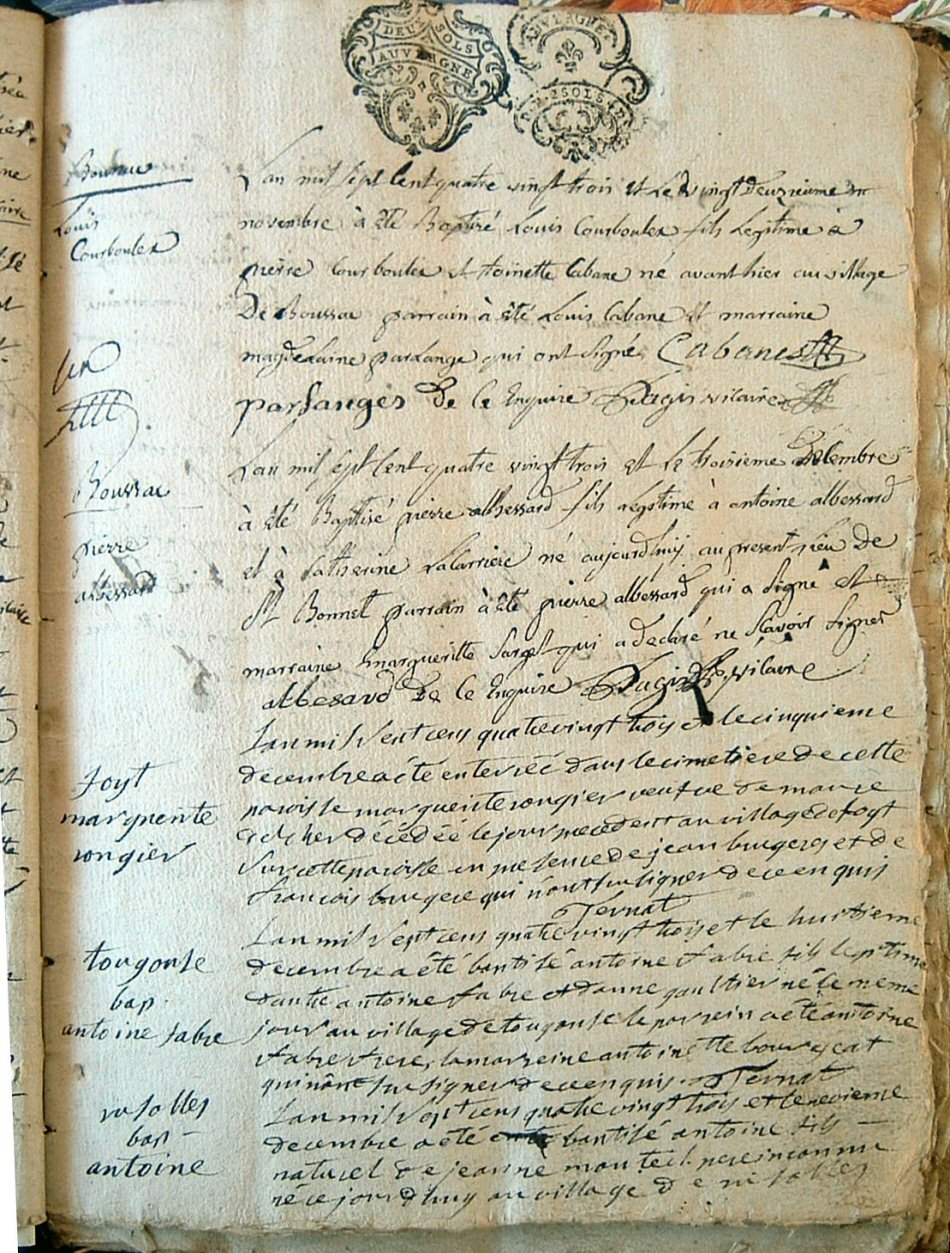 DEUX SOLS
AUVERGNE
AUVERGNE
2 SOLS
Louis
Courboulex
Lan mil sept cent quatre vingt trois et le vingt deuzieume
novembre à été Baptizé Louis Courboulex fils legitime à
pierre Courboulex et toinette Cabane né avanthier au village
De Boussac parrain à été Louis Cabane et marraine
magdelaine parlange qui ont signé Cabanes
parlanges De ce Enquire vicaire
Boussac
pierre
albessard
Lan mil sept cent quatre vingt trois et le troisieme Decembre
à été Baptisé pierre albessard fils legitime à antoine albessard
et à Catherine né aujourdhuy au present lieu De
St Bonnet parrain à été pierre albessard qui a signé et
marraine marguerite qui a declaré ne sçavoir signer
albesard De ce Enquire vicaire
foyt
marguerite
rongier
Lan mil sept cens quatre vingt trois et le cinquieme
decembre a été enterrée dans le cimetiere de cette
paroisse marguerite rongier veufve de
decédée le jour precedent au village de foyt
sur cette paroisse en presence de jean et de
francois qui n'ont su signer de ce enquis
Ternat
tougouse
bap
antoine fabre
Lan mil sept cens quatre vingt trois et le huitieme
decembre a été batisé antoine fabre fils legitime
dautre antoine fabre et danne gaultier né le meme
jour au village de tougouse le parrein a été antoine
fabre frere, la marreine antoinette
qui nont su signer de ce enquis Ternat
bap
antoine
Lan mil sept cens quatre vingt trois et le
decembre a été batisé antoine fils
naturel de jeanne pere inconnu
né ce jourdhuy au village de